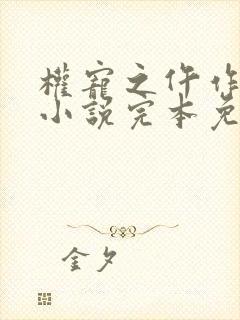 權寵之仵作
小說完本免
金夕